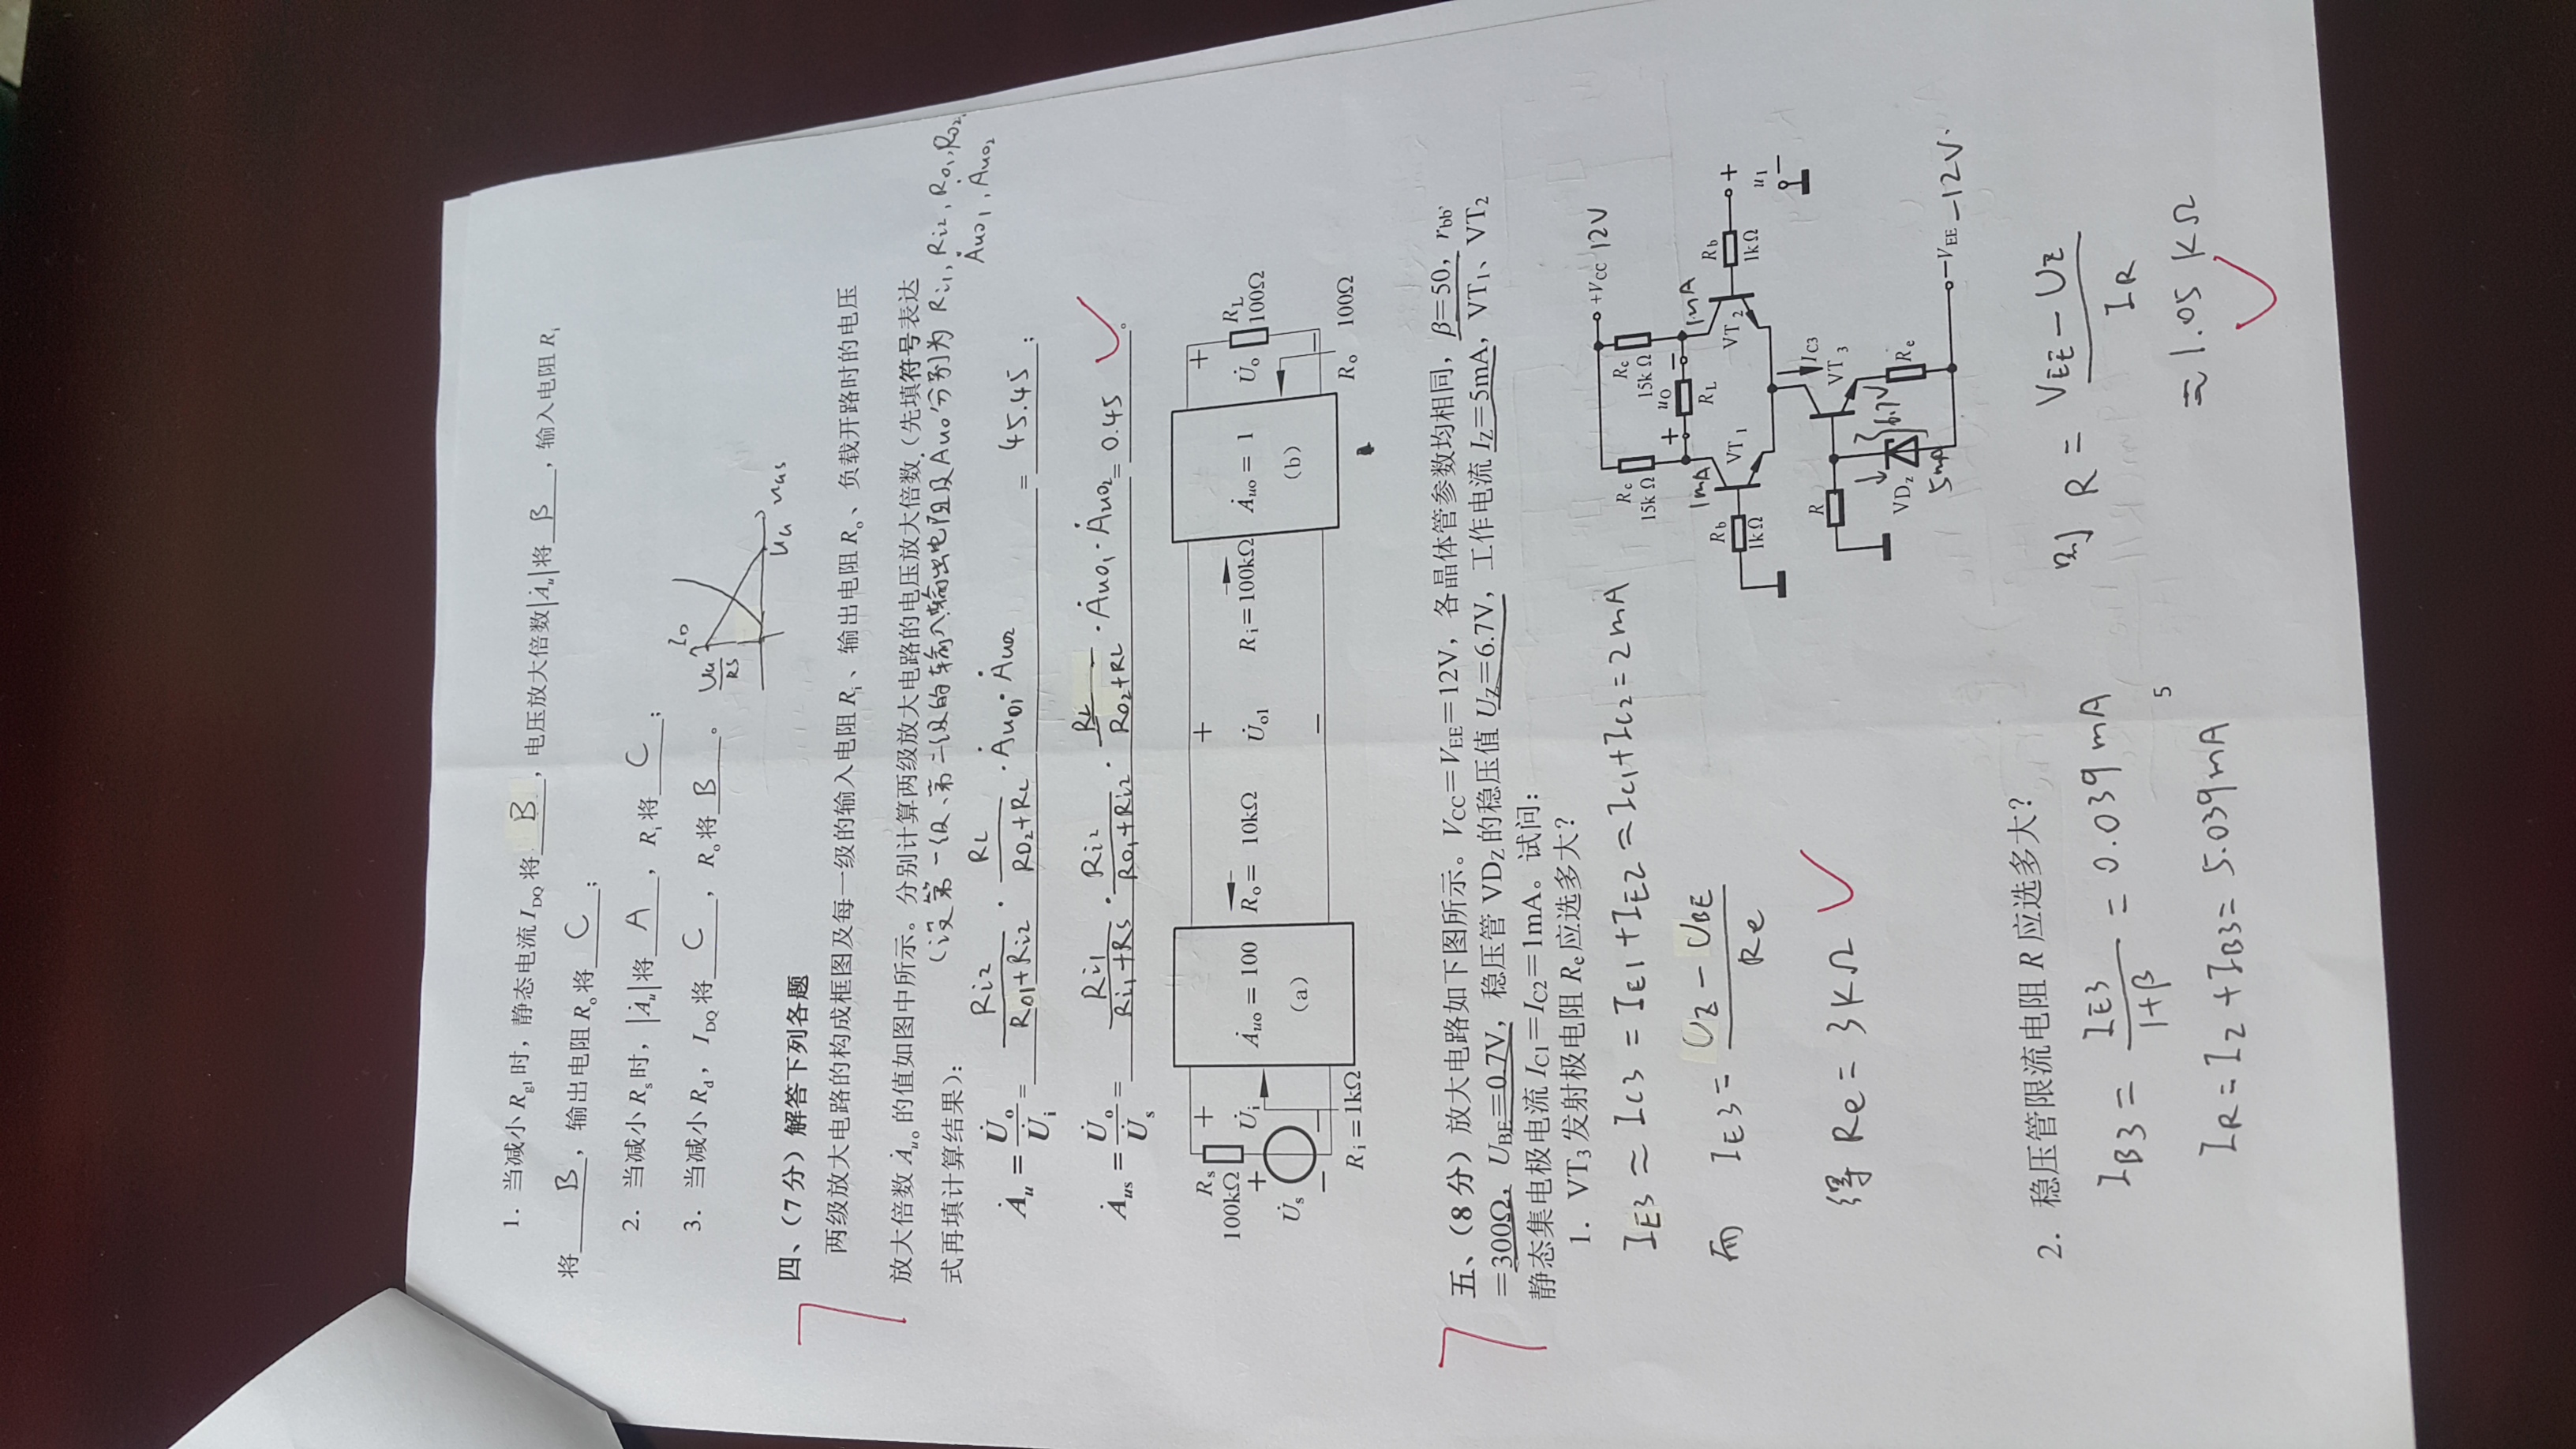 1. 当减小 Rg1 时，静态电流 IDQ 将 B ，电压放大倍数|Ȧu|将 B ，输入电阻 Ri
将 B ，输出电阻 Ro 将 C ；
2. 当减小 Rs 时，|Ȧu|将 A ，Ri 将 C ；
3. 当减小 Rd，IDQ 将 C ，Ro 将 B 。
7
四、（7 分）解答下列各题
两级放大电路的构成框图及每一级的输入电阻 Ri、输出电阻 Ro、负载开路时的电压
放大倍数 Ȧuo 的值如图中所示。分别计算两级放大电路的电压放大倍数（先填符号表达
式再填计算结果）：
（设第一级、第二级的输入输出电阻及Ȧuo分别为 Ri1, Ri2, Ro1, Ro2,
Ȧuo1, Ȧuo2
Ȧu = U̇o/U̇i = Ri2/(Ro1+Ri2) · RL/(Ro2+RL) · Ȧuo1 · Ȧuo2 = 45.45 ；
Ȧus = U̇o/U̇s = Ri1/(Ri1+Rs) · Ri2/(Ro1+Ri2) · RL/(Ro2+RL) · Ȧuo1 · Ȧuo2 = 0.45 。
Rs
100kΩ
+
U̇i
−
+
U̇s
−
Ri＝1kΩ
Ȧuo＝100
（a）
Ro＝ 10kΩ
+
U̇o1
−
Ri＝100kΩ
Ȧuo＝ 1
（b）
+
U̇o
−
RL
100Ω
Ro 100Ω
7
五、（8 分）放大电路如下图所示。VCC＝VEE＝12V，各晶体管参数均相同，β＝50，rbb'
＝300Ω，UBE＝0.7V，稳压管 VDZ 的稳压值 UZ＝6.7V，工作电流 IZ＝5mA，VT1、VT2
静态集电极电流 IC1＝IC2＝1mA。试问：
1. VT3 发射极电阻 Re 应选多大？
IE3 ≈ IC3 = IE1 + IE2 ≈ IC1 + IC2 = 2mA
而 IE3 = (UZ − UBE)/Re
得 Re = 3kΩ
+VCC 12V
Rc
15kΩ
Rc
15kΩ
+ uO −
RL
1mA
1mA
Rb
1kΩ
VT1
VT2
Rb
1kΩ
+
uI
−
IC3
R
VT3
VDz
6.7V
5mA
Re
−VEE −12V
2. 稳压管限流电阻 R 应选多大？
IB3 = IE3/(1+β) = 0.039 mA
IR = IZ + IB3 = 5.039mA
则 R = (VEE − UZ)/IR
≈ 1.05 kΩ
5